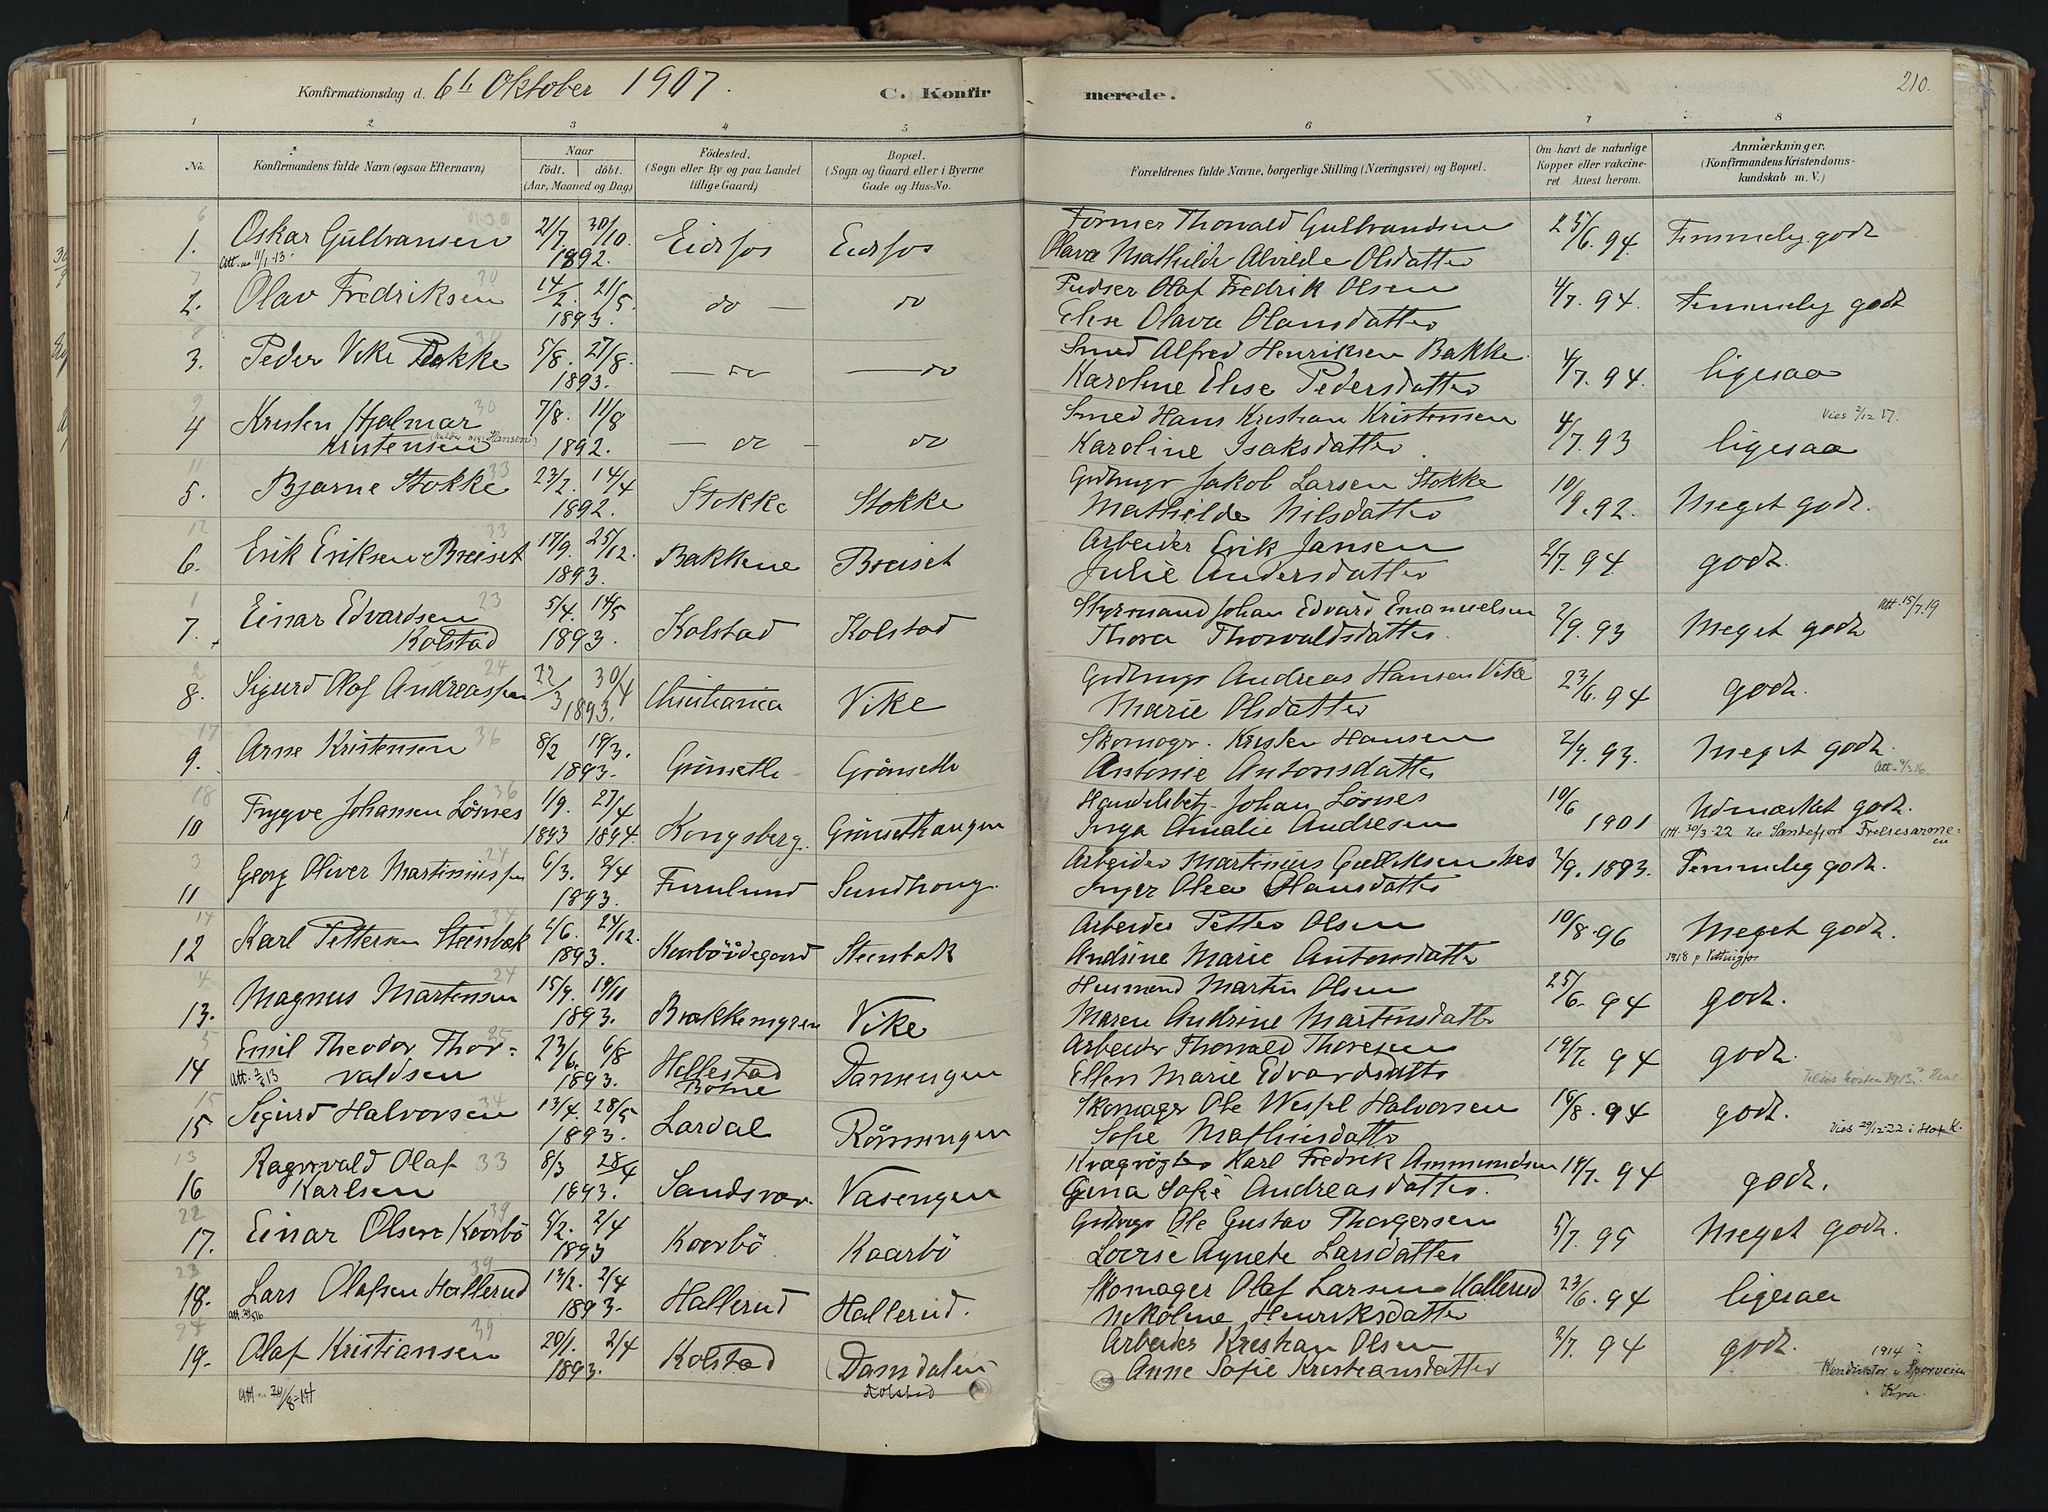 Konfirmationsdag d. 6th Oktober 1907. C. Konfirmerede. 210.
1 2 3 4 5 6 7 8
No. Konfirmandens fulde Navn (ogsaa Efternavn) Naar födt. döbt. (Aar, Maaned og Dag) Födested. (Sogn eller By og paa Landet tillige Gaard) Bopæl. (Sogn og Gaard eller i Byerne Gade og Hus-No. Forældrenes fulde Navne, borgerlige Stilling (Næringsvei) og Bopæl. Om havt de naturlige Kopper eller vakcineret. Attest herom. Anmærkninger. (Konfirmandens Kristendomskundskab m. V.)
1. Oskar Gulbransen 21/7. 30/10. Eidsfos Eidsfos Former Thorvald Gulbrandsen 25/6. 94. Temmelig godt
Att. 11/1-13. 1892. Olava Mathilde Alvilde Olsdatter
2. Olav Fredriksen 14/2. 21/5. do do Pudser Olaf Fredrik Olsen 4/7. 94. Temmelig godt
1893. Elise Olava Olausdatter
3. Peder Vike Bakke 5/8. 27/8. do do Smed Alfred Henriksen Bakke. 4/7. 94. ligesaa
1893. Karoline Elise Pedersdatter
4 Kristen Hjalmar 7/8. 11/8 do do Smed Hans Kristian Kristensen 4/7. 93 ligesaa
Kristensen 1892. Karoline Isaksdatter. Vies 2/12 17.
5. Bjarne Stokke 23/2. 14/4 Stokke Stokke Gdbrugr Jakob Larsen Stokke 10/9. 92. Meget godt.
1892. Mathilde Nilsdatter
6. Erik Eriksen Breiset 17/9. 25/12. Bakkene Breiset Arbeider Erik Jansen 2/7. 94. godt.
1893. Julie Andersdatter
7. Einar Edvardsen 5/4. 14/5 Kolstad Kolstad Styrmand Johan Edvard Emanuelsen 2/9. 93 Meget godt Att. 15/7.19
Kolstad 1893. Thora Thorvaldsdatter.
8. Sigurd Olaf Andreassen 22/3 30/4 Christiania Vike Gdbrugr Andreas Hansen Vike 23/6. 94 godt.
1893. Marie Olsdatter
9. Arne Kristensen 8/2 19/3. Grönseth Grönseth Skomagr. Kristen Hansen 2/9. 93. Meget godt.
1893. Antonie Antonsdatter Att. 9/3 16.
10 Trygve Johansen Lösnes 1/9. 27/4 Kongsberg. Grönsethaugen Handelsbetj. Johan Lösnes 10/6 1901 Udmærket godt.
1893 1894. Inga Amalie Andresen Att. 30/3-22 til Sandefjord Frelsesarmeen
11 Georg Oliver Martiniussen 6/3. 2/4 Furulund Sundhaug. Arbeider Martinius Gulliksen Næs 2/9. 1893. Temmelig godt.
1893. Inger Olea Hansdatter
12 Karl Pettersen Steinbæk 2/6. 24/12. Kaarbödegaard Steinbæk Arbeider Petter Olsen 10/8. 96 Meget godt.
1893. Andrine Marie Antonsdatter 1918 p Vittingfos
13. Magnus Martinsen 15/9. 19/11 Bakkemyren Vike Husmand Martin Olsen 25/6. 94 godt.
1893. Maren Andrine Martinsdatter
14 Emil Theodor Thor- 23/6. 6/8 Hellestad Damengen Arbeider Thorvald Thoresen 19/7. 94 godt.
valdsen 1893. Botne Ellen Marie Edvardsdatter
15 Sigurd Halvorsen 13/4. 28/5 Lardal Rönningen Skomager Ole Wessel Halvorsen 16/8. 94 godt.
1893. Sofie Mathiasdatter Vies 29/12-22 i Hof K.
16 Ragnvald Olaf 8/3 28/4 Sandsvær. Vasengen Kvægrögter Karl Fredrik Ammundsen 19/7. 94 godt.
Karlsen 1893. Gina Sofie Andreasdatter.
17. Einar Olsen Kaarbö 5/2. 2/4 Kaarbö Kaarbö Gdbrugr Ole Gustav Thorgersen 5/7. 95 Meget godt.
1893 Lovise Agnete Larsdatter
18. Lars Olafsen Hallerud 13/2. 2/4 Hallerud Hallerud. Skomager Olaf Larsen Hallerud 23/6. 94 ligesaa
1893. Nikoline Henriksdatter
19. Olaf Kristiansen 20/1. 2/4 Kolstad (Damdalen) Arbeider Kristian Olsen 2/7. 94 godt.
1893. Kolstad Anne Sofie Kristiansdatter 1914 ?
Konduktör v Sporveien
Kra.